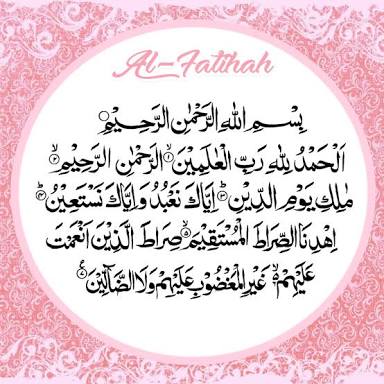 Al-Fatihah
بِسْمِ اللهِ الرَّحْمٰنِ الرَّحِيْمِ
اَلْحَمْدُ لِلّٰهِ رَبِّ الْعٰلَمِيْنَ ۝١ الرَّحْمٰنِ الرَّحِيْمِ ۝٢
مٰلِكِ يَوْمِ الدِّيْنِ ۝٣ اِيَّاكَ نَعْبُدُ وَاِيَّاكَ نَسْتَعِيْنُ ۝٤
اِهْدِنَا الصِّرَاطَ الْمُسْتَقِيْمَ ۝٥ صِرَاطَ الَّذِيْنَ اَنْعَمْتَ
عَلَيْهِمْ ۝٦ غَيْرِ الْمَغْضُوْبِ عَلَيْهِمْ وَلَا الضَّآلِّيْنَ ۝٧